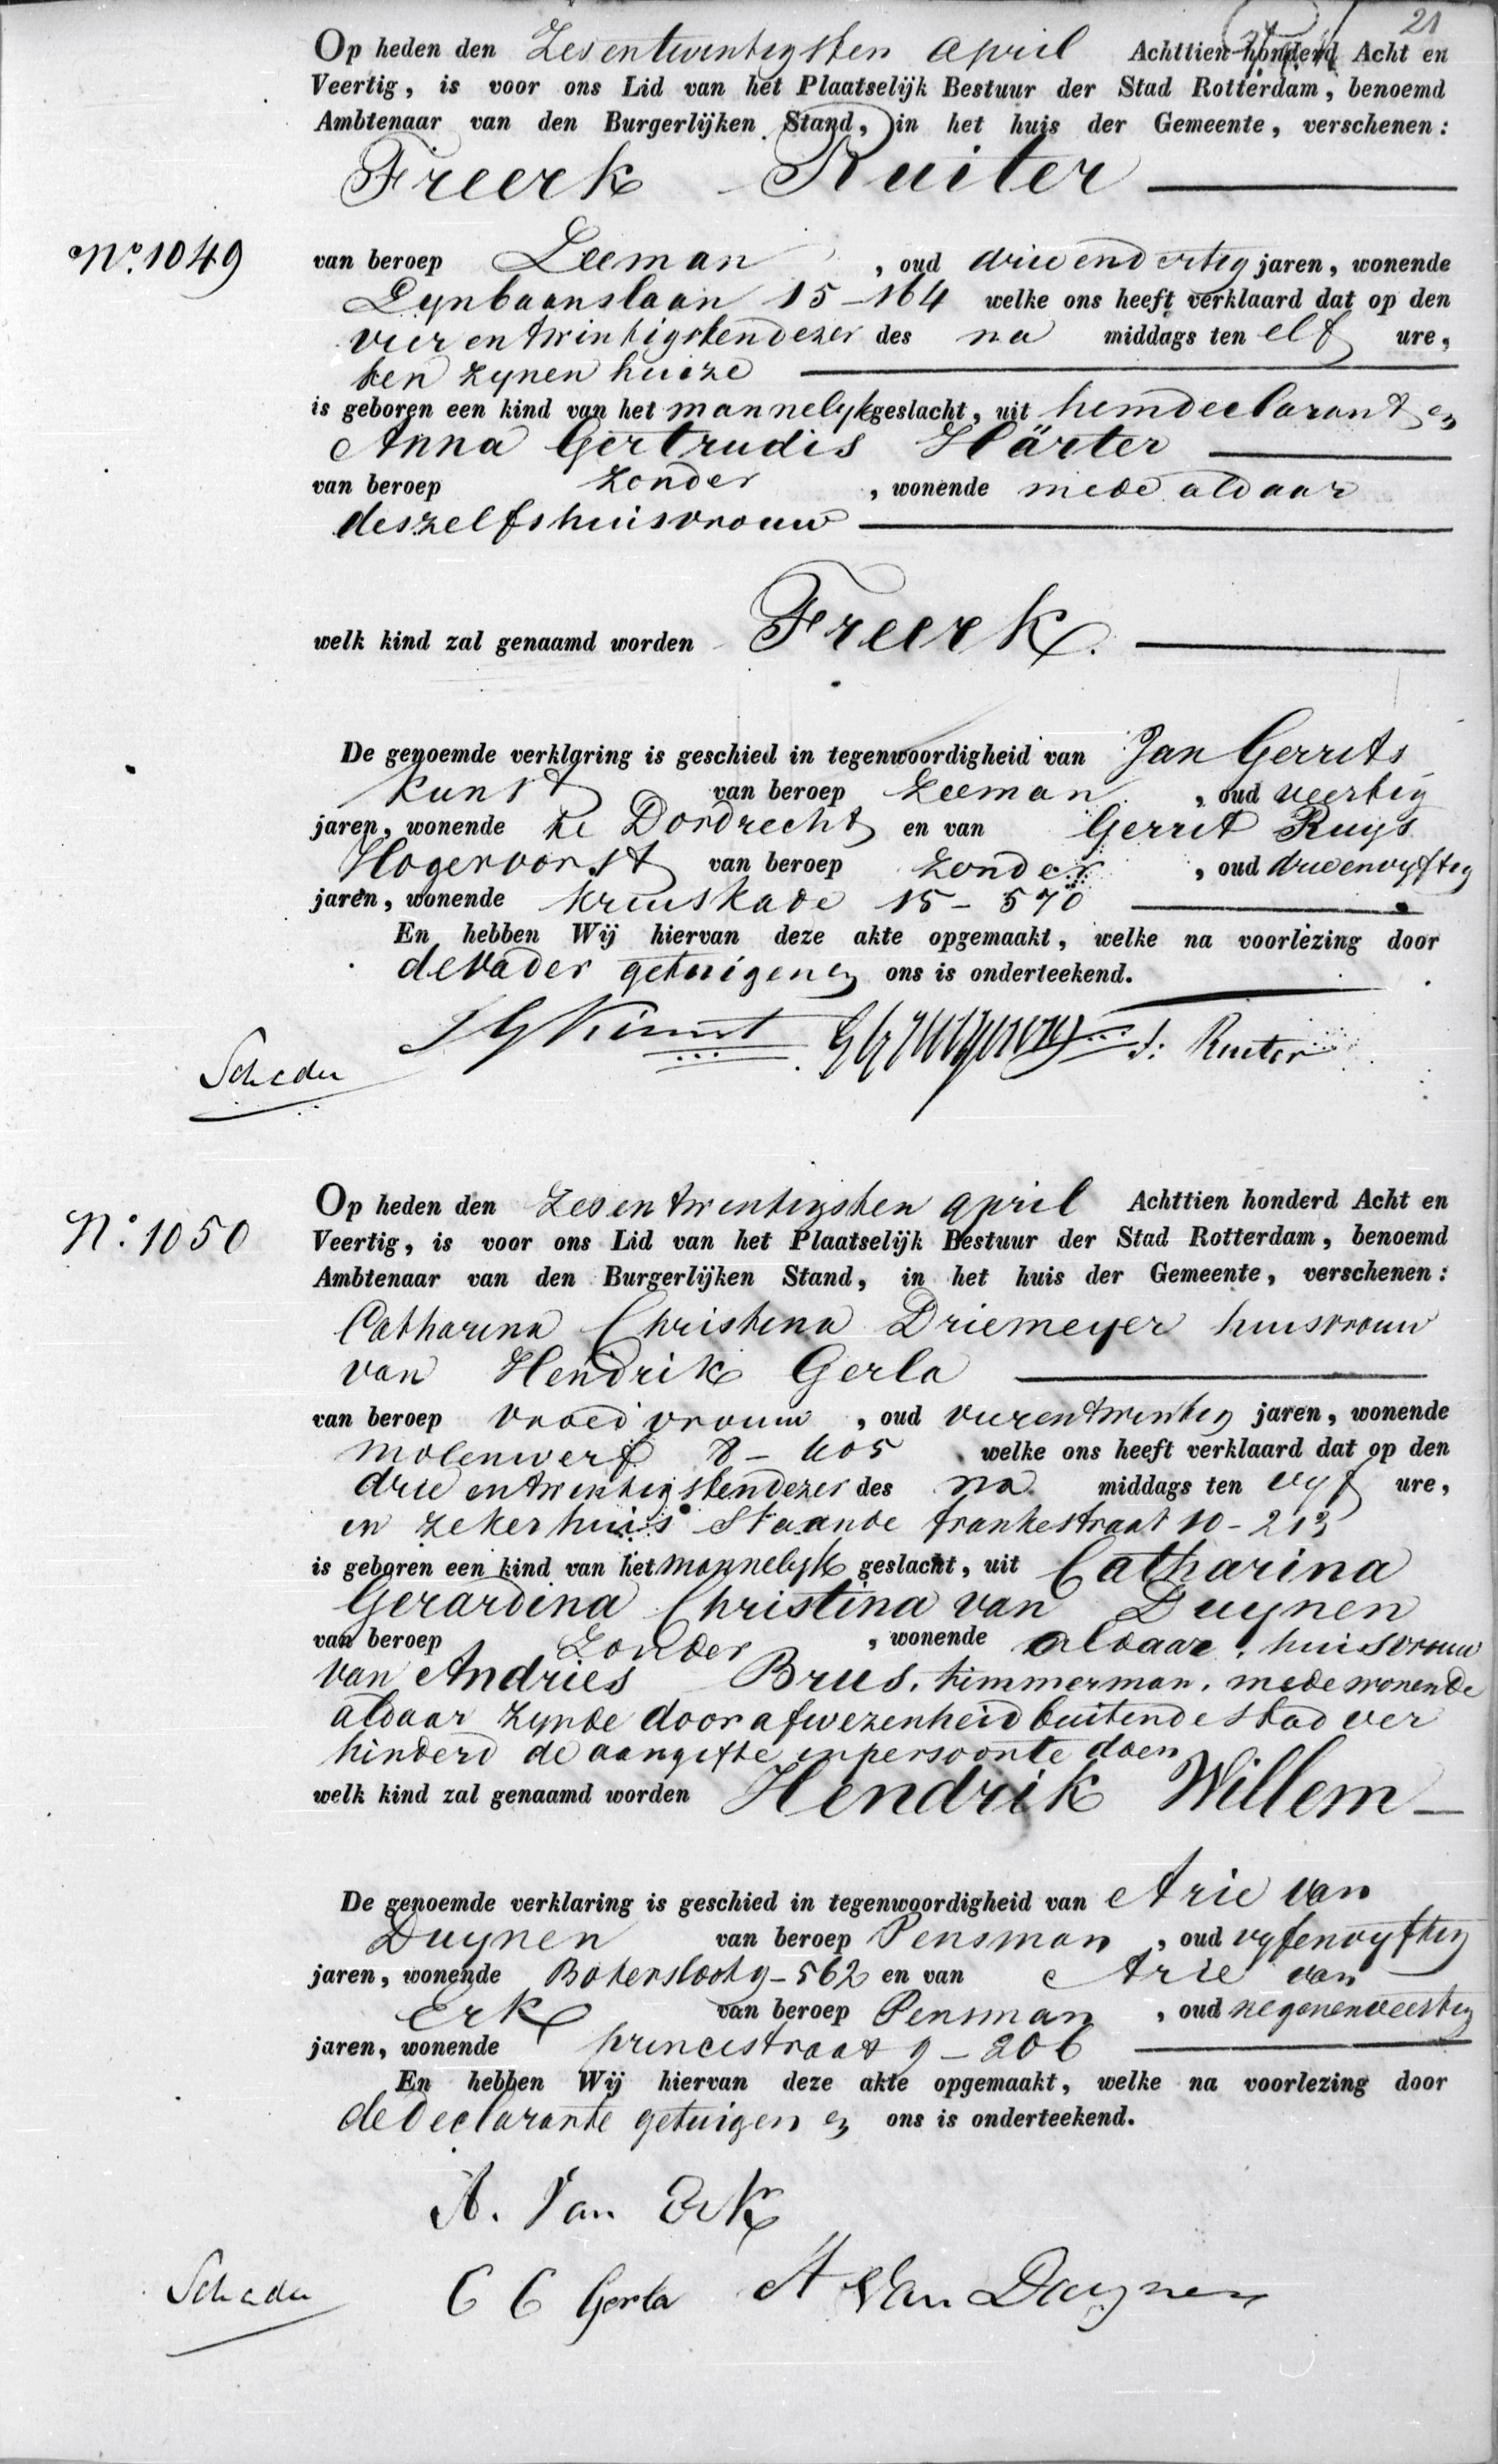 21
Op heden den Zesentwintigsten April Achttien honderd Acht en
Veertig, is voor ons Lid van het Plaatselijk Bestuur der Stad Rotterdam, benoemd
Ambtenaar van den Burgerlijken Stand, in het huis der Gemeente, verschenen:
Freerk Ruiter
No. 1049
van beroep Zeeman, oud drieendertig jaren, wonende
Lynbaanslaan 15-164 welke ons heeft verklaard dat op den
vierentwintigsten dezer des na middags ten elf ure,
ten zynen huize
is geboren een kind van het mannelyk geslacht, uit hem declarant en
Anna Gertrudis Härter
van beroep zonder, wonende mede aldaar
deszelfs huisvrouw
welk kind zal genaamd worden Freerk.
De genoemde verklaring is geschied in tegenwoordigheid van Jan Gerrits
Kunst van beroep Zeeman, oud veertig
jaren, wonende te Dordrecht en van Gerrit Ruys
Hogervorst van beroep zonder, oud drieenvyftig
jaren, wonende Kruiskade 15-570
En hebben Wij hiervan deze akte opgemaakt, welke na voorlezing door
de vader getuigen en ons is onderteekend.
J G Kunst F: Ruiter
Schader
No. 1050
Op heden den Zesentwintigsten april Achttien honderd Acht en
Veertig, is voor ons Lid van het Plaatselijk Bestuur der Stad Rotterdam, benoemd
Ambtenaar van den Burgerlijken Stand, in het huis der Gemeente, verschenen:
Catharina Christina Driemeyer huisvrouw
van Hendrik Gerla
van beroep vroedvrouw, oud vierentwintig jaren, wonende
molenwerf 8-605 welke ons heeft verklaard dat op den
drieentwintigsten dezer des na middags ten vyf ure,
in zeker huis staande frankestraat 10-213
is geboren een kind van het mannelyk geslacht, uit Catharina
Gerardina Christina van Duynen
van beroep Zonder, wonende aldaar, huisvrouw
van Andries Brus, timmerman, mede wonende
aldaar zynde door afwezenheid buiten de stad ver
hinderd de aangifte in persoon te doen
welk kind zal genaamd worden Hendrik Willem
De genoemde verklaring is geschied in tegenwoordigheid van Arie van
Duynen van beroep Pensman, oud vyfenvyftig
jaren, wonende Botersloot 9-562 en van Arie van
Erk van beroep Pensman, oud negenenveertig
jaren, wonende princestraat 9-206
En hebben Wij hiervan deze akte opgemaakt, welke na voorlezing door
de declarante getuigen en ons is onderteekend.
A. Van Erk
Schader C C Gerla A Van Duynen